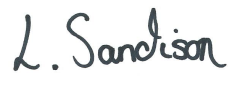 L. Sandison